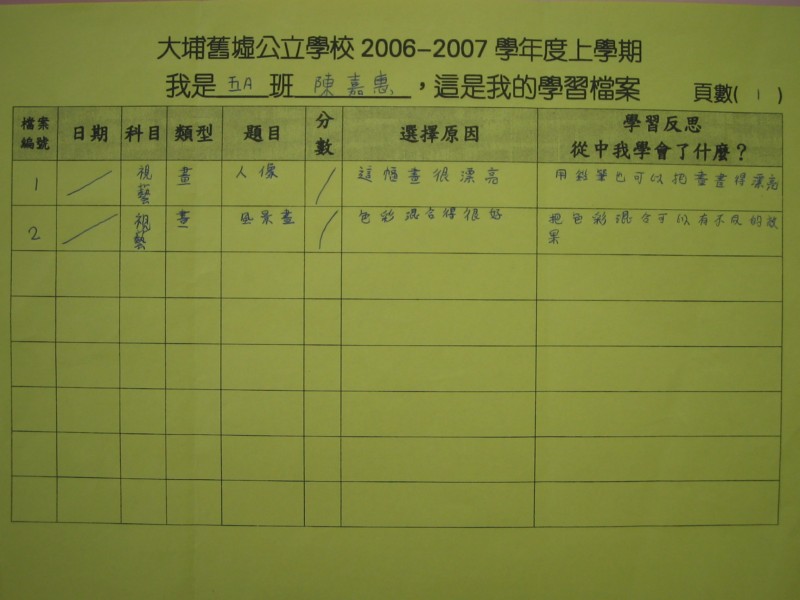 大埔舊墟公立學校 2006-2007 學年度上學期
我是 五A 班 陳嘉惠 ,這是我的學習檔案 頁數( 1 )
檔案編號 日期 科目 類型 題目 分數 選擇原因 學習反思 從中我學會了什麼?
1 視藝 畫 人像 這幅畫很漂亮 用彩筆也可以把畫畫得漂亮
2 視藝 畫 風景畫 色彩混合得很好 把色彩混合可以有不同的效果